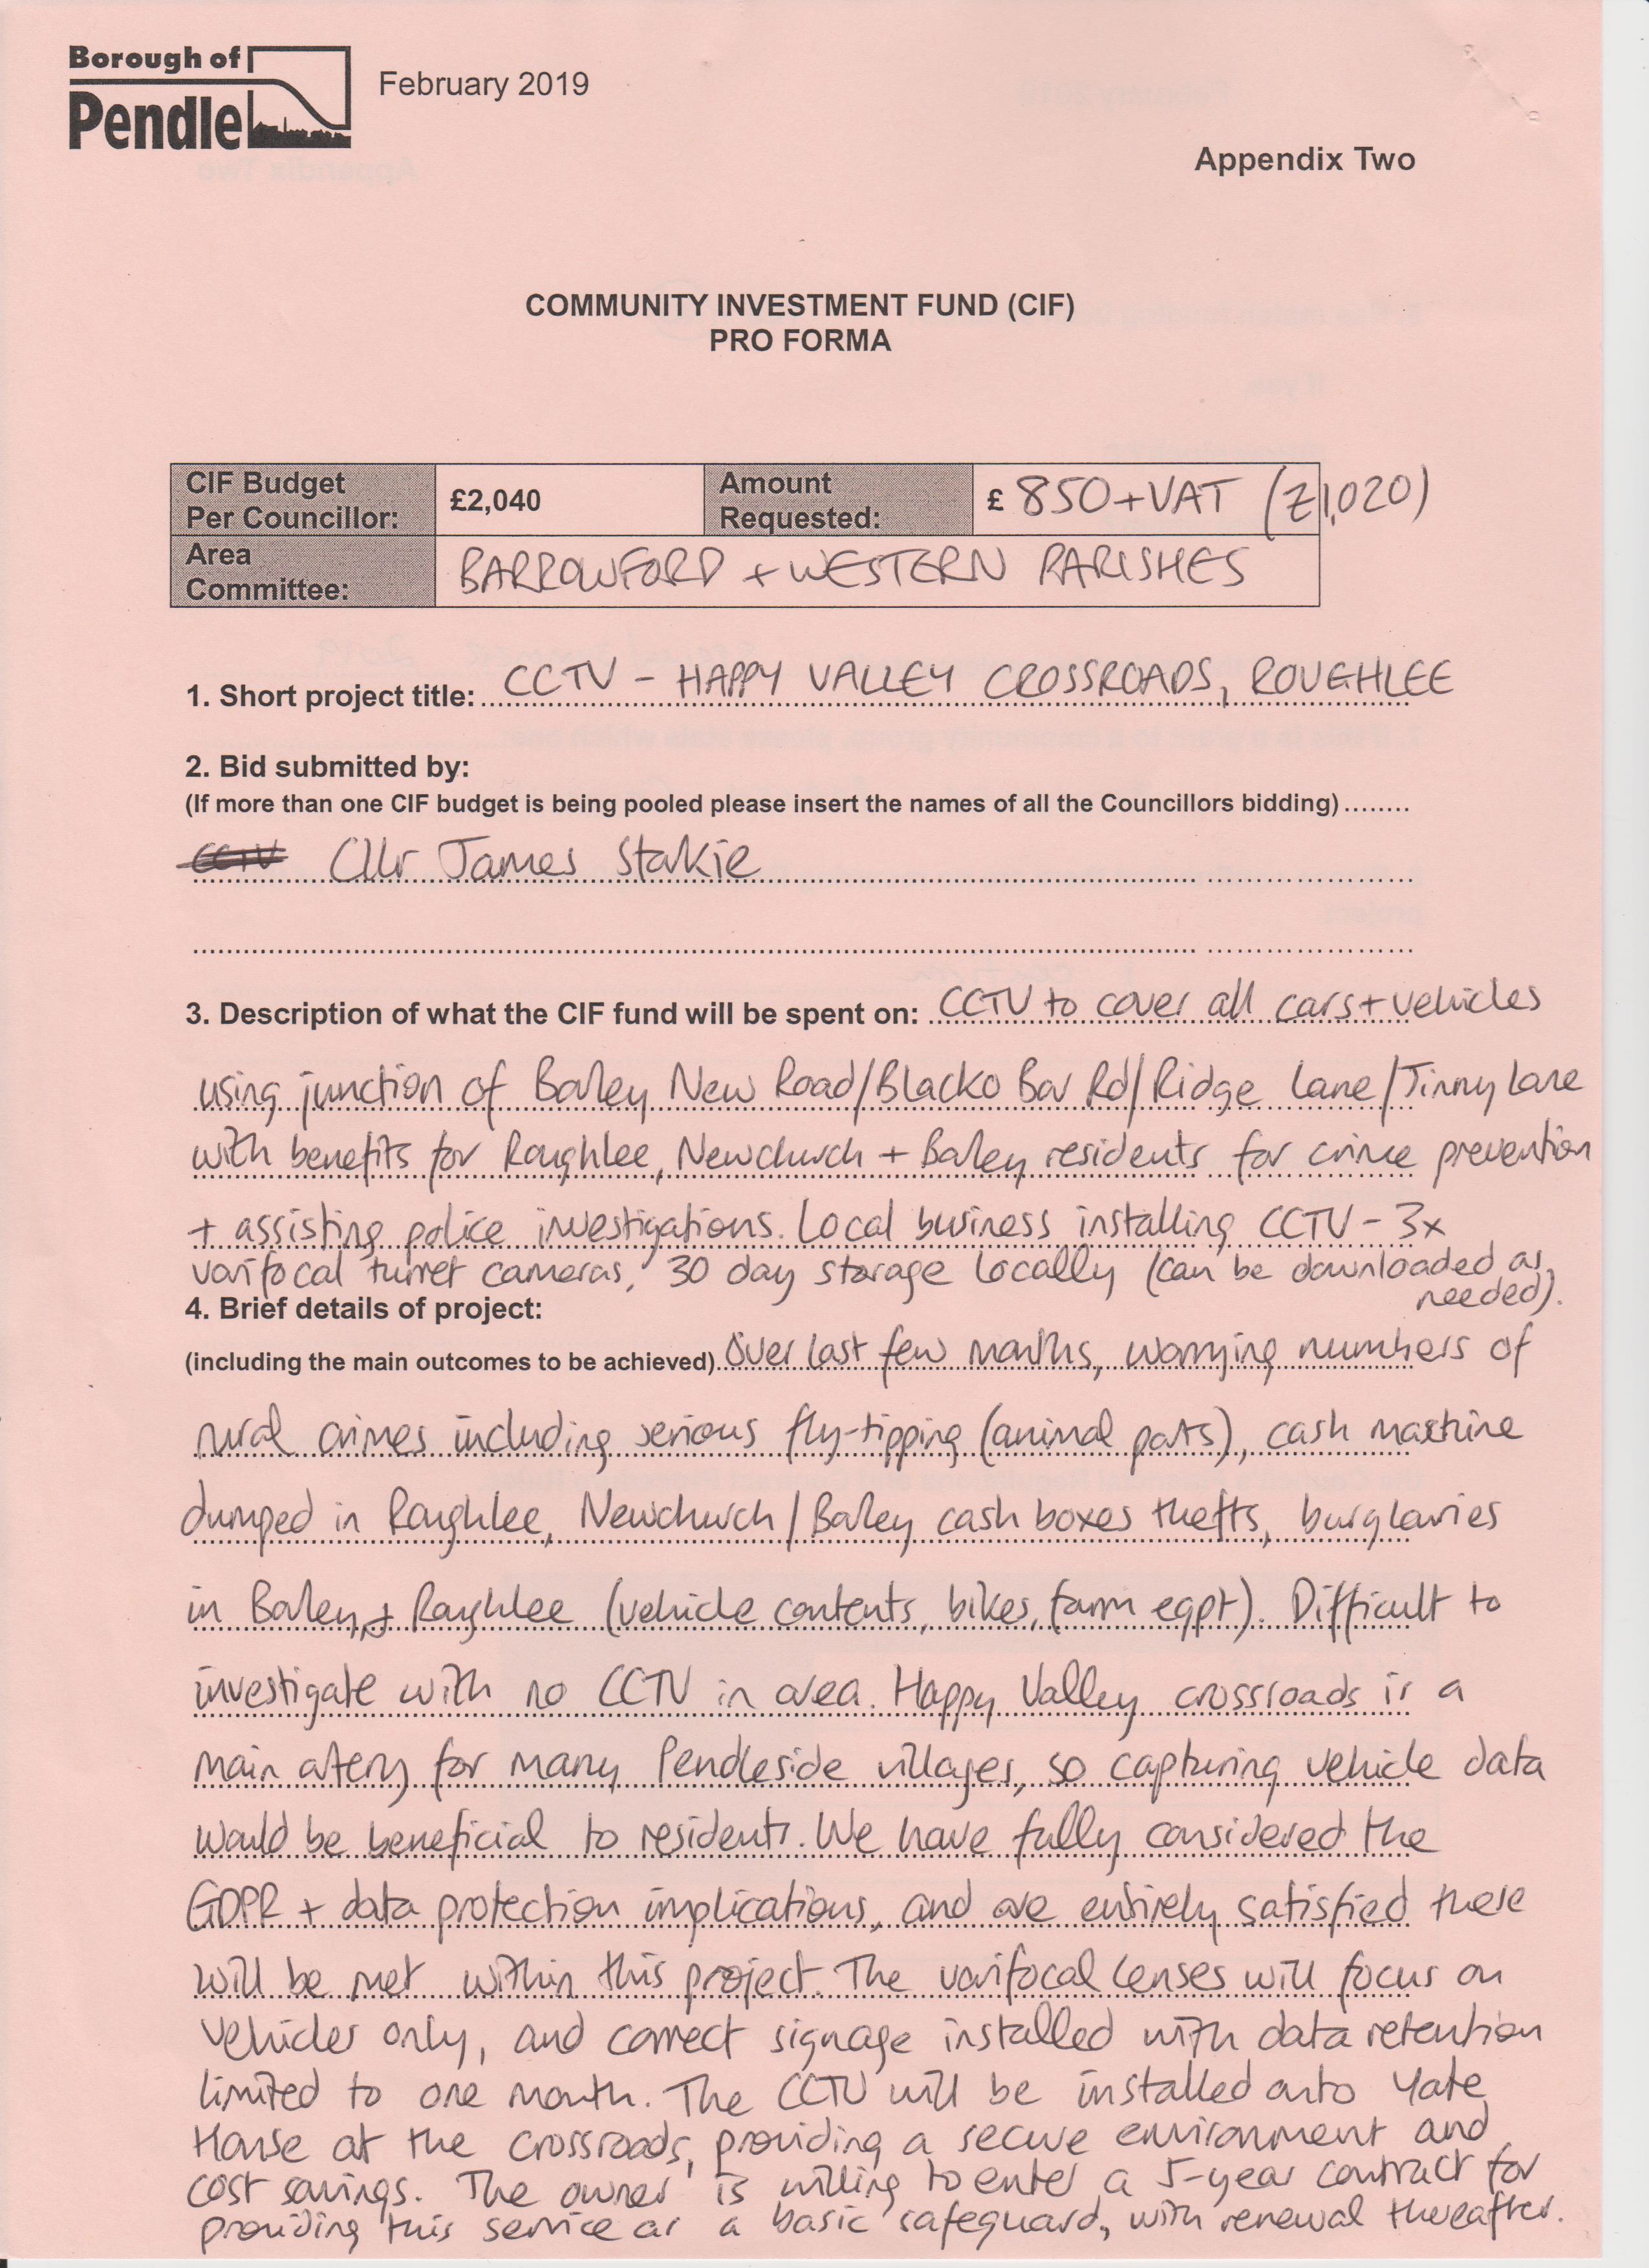 Borough of
Pendle
February 2019
Appendix Two
COMMUNITY INVESTMENT FUND (CIF)
PRO FORMA
CIF Budget Per Councillor: £2,040 Amount Requested: £ 850+VAT (£1,020)
Area Committee: BARROWFORD + WESTERN PARISHES
1. Short project title: CCTV - HAPPY VALLEY CROSSROADS, ROUGHLEE
2. Bid submitted by:
(If more than one CIF budget is being pooled please insert the names of all the Councillors bidding)........
CCTV Cllr James Starkie
3. Description of what the CIF fund will be spent on: CCTV to cover all cars + vehicles
using junction of Barley New Road/Blacko Bar Rd/Ridge Lane/Jinny Lane
with benefits for Roughlee, Newchurch + Barley residents for crime prevention
+ assisting police investigations. Local business installing CCTV - 3x
varifocal turret cameras, 30 day storage locally (can be downloaded as
needed).
4. Brief details of project:
(including the main outcomes to be achieved) Over last few months, worrying numbers of
rural crimes including serious fly-tipping (animal parts), cash machine
dumped in Roughlee, Newchurch/Barley cash boxes thefts, burglaries
in Barley + Roughlee (vehicle contents, bikes, farm eqpt). Difficult to
investigate with no CCTV in area. Happy Valley crossroads is a
main artery for many Pendleside villages, so capturing vehicle data
would be beneficial to residents. We have fully considered the
GDPR + data protection implications, and are entirely satisfied these
will be met within this project. The varifocal lenses will focus on
vehicles only, and correct signage installed with data retention
limited to one month. The CCTV will be installed onto Yate
House at the crossroads, providing a secure environment and
cost savings. The owner is willing to enter a 5-year contract for
providing this service as a basic safeguard, with renewal thereafter.